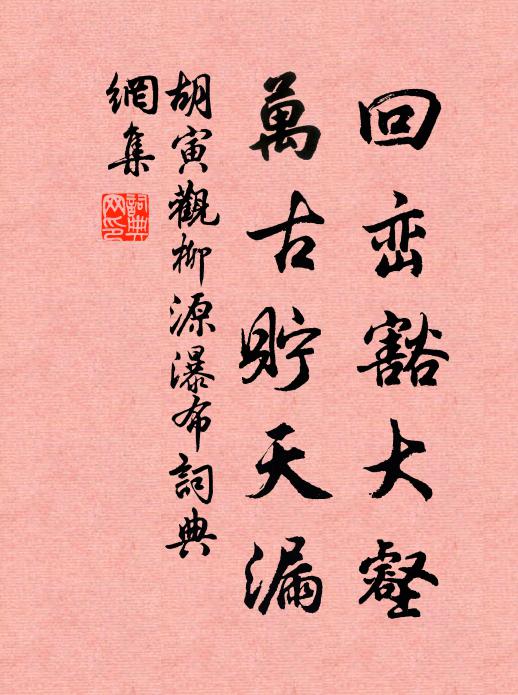 回峦豁大壑
萬古貯天漏
胡寅觀柳源瀑布詞典
網集
詞典網印